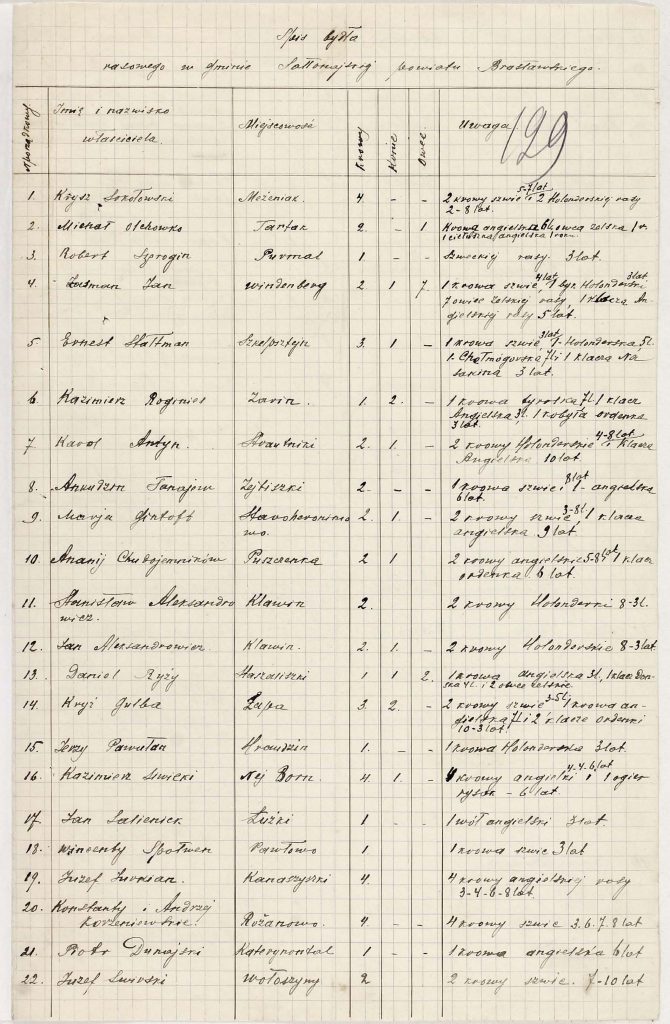 Spis bydła
rasowego w gminie Sołłomajskiej powiatu Brasławskiego.
129
Imię i nazwisko właściciela. Miejscowość Krowy Konie Owce Uwaga
1. Kryż Sokołowski Meżeniak. 4. - - 2 krowy szwic 5-7 lat i 2 Holonderskiej rasy
2-8 lat.
2. Michał Olchowko Tartak 2. - 1 Krowa angielska 6 l. owca żelska 1 r.
1 angielska 1 roku.
3. Robert Purmal 1 - - Szweckiej rasy 3 lat.
4. Jan Windenberg 2 1 7. 1 krowa szwic 4 lat, 1 byk Holonderski 3 lat
7 owiec żelskiej rasy, 1 klacz An-
gielskiej rasy 5 lat.
5. Ernest Stałtman 3. 1 - 1 krowa szwic 3 lat, 1 Holonderska 5 l.
1 7 l. i 1 klacz
3 lat.
6. Kazimierz Roginies Zarin. 1 2. - 1 krowa tyrolka 7 l. 1 klacz
Angielska 3 l. 1 kobyła ordenka
3 lat.
7 Karol Antyn. Strautniki 2. 1. - 2 krowy Holonderskie 4-8 lat i klacz
Angielska 10 lat
8. Tanajew Zejtiszki 2. - - 1 krowa szwic 8 lat i 1 - angielska
6 lat.
9. Marja Gintoft Staroheronimo 2. 1. - 2 krowy szwic 3-8 l. , 1 klacz
wo. angielska 9 lat
10. Ananij Chudojemników Puszczenka 2 1 2 krowy angielskie 5-8 lat 1 klacz
ordenka 6 lat.
11. Stanisław Aleksandro Klawin 2. 2 krowy Holonderki 8-3 l.
wicz.
12. Jan Aleksandrowicz Klawin. 2. 1. - 2 krowy Holonderskie 8-3 lat.
13. Daniel Ryży 1 1 2. 1 krowa angielska 3 l. 1 klacz Don-
ska 4 l. i 2 owce żelskie.
14. Kryż Gulba Łapa 3. 2. - 2 krowy szwic 3-5 l. 1 krowa an-
gielska 7 l. i 2 klacze ordenki
10-3 lat.
15. Jerzy Pawułan Hraudzin 1. - - 1 krowa Holonderska 3 lat.
16. Kazimierz Siwicki Nej Born. 4. 1. - 4 krowy angielki 4.4.6 lat i 1 ogier
rysak - 6 lat.
17. Jan Salieniek Łużki 1 - - 1 wół angielski 3 lat.
18. Wincenty Społwen Pawłowo 1 1 krowa szwic 3 lat
19. Juzef Jurkian. Kanaszyszki 4. 4 krowy angielskiej rasy
3-4-6-8 lat
20. Konstanty i Andrzej
Korzeniewskie. Rożanowo. 4. - - 4 krowy szwic 3.6.7.8 lat
21. Piotr Dunajski 1 - - 1 krowa angielska 6 lat
22. Juzef Wołoszyny 2 2 krowy szwic. 7-10 lat